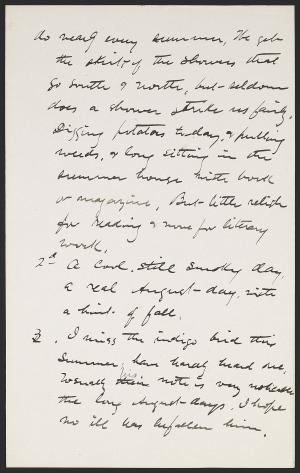 do nearly every summer. We get
the skirt of the showers that
go south & north, but seldom
does a shower strike us fairly.
Digging potatoes today, & pulling
weeds, & long sitting in the
summer house with book
or magazine. But little relish
for reading & none for literary
work.
2d A cool, still smoky day,
a real August-day, with
a hint of fall.
3. I miss the indigo bird this
Summer, have hardly heard one,
Usually his note is very noticeable
the long August-days. I hope
no ill has befallen him.